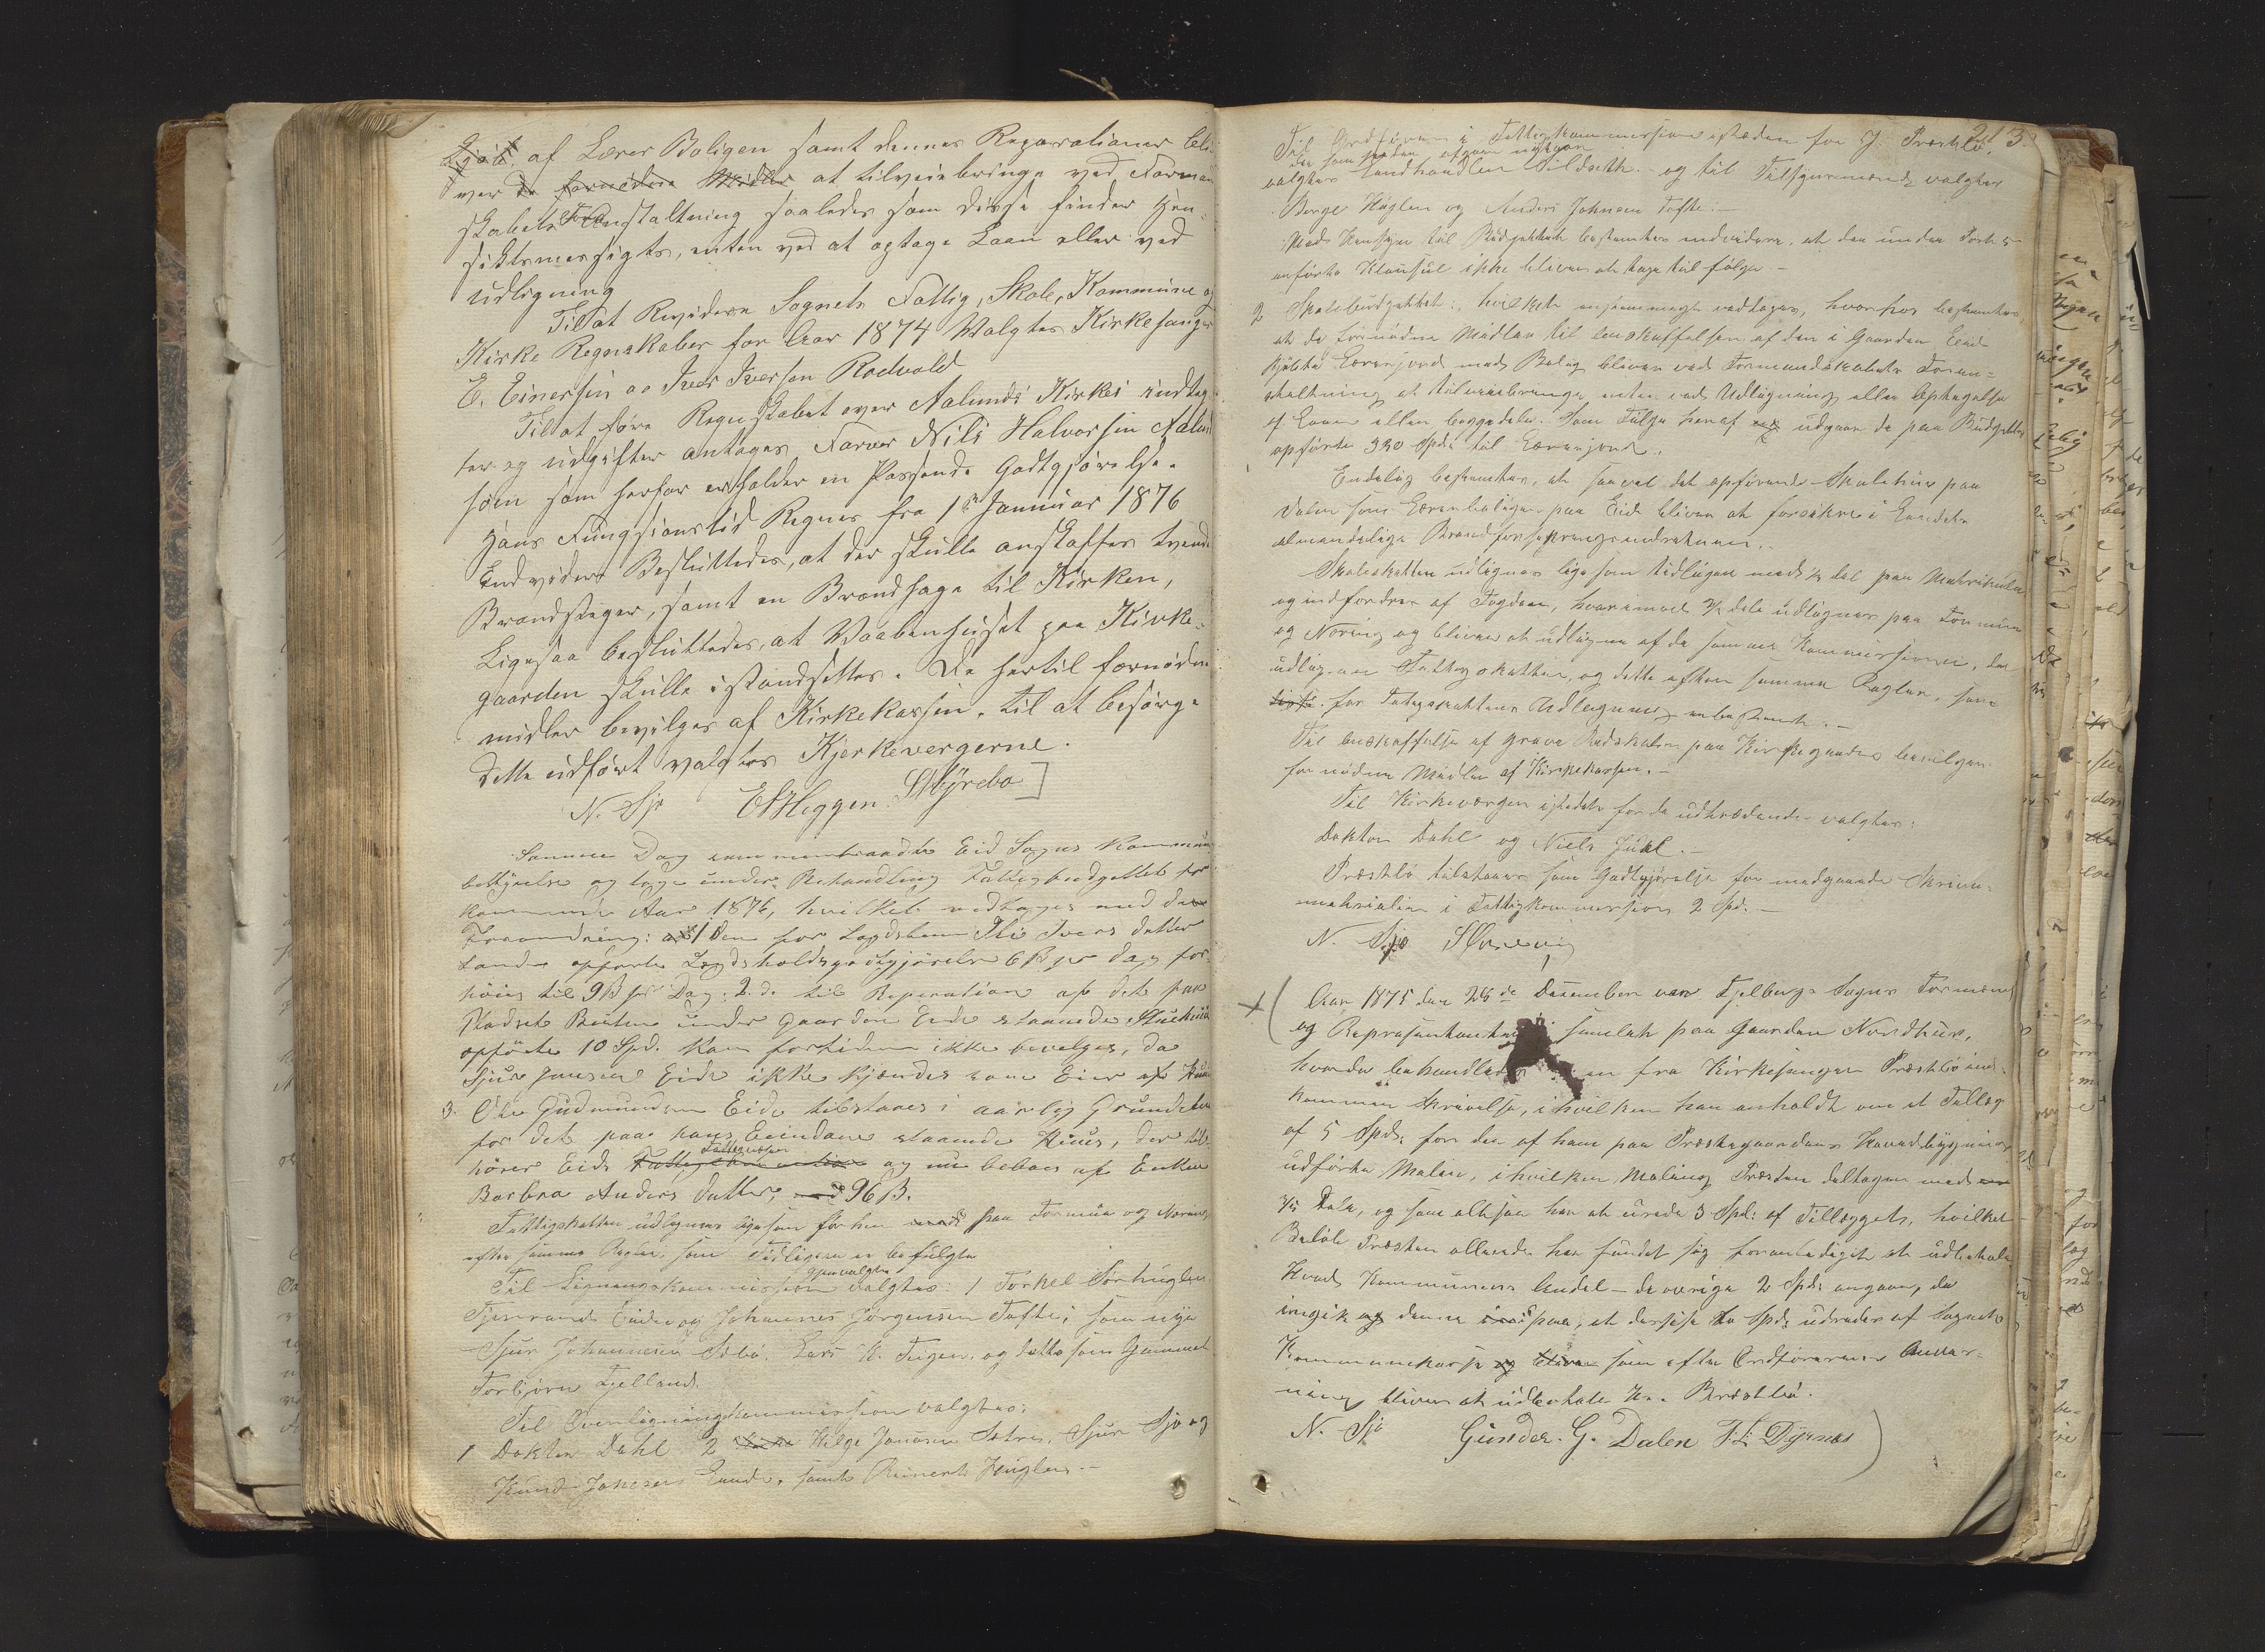 Kjøb af Lærer Boligen samt dennes Reparationer bli-
ver de fornødne Midler at tilveiebringe ved Formand
skabets Foranstaltning saaledes som disse finder hen-
sigtsmessigts, enten ved at optage Laan eller ved
Udligning
Til at Revidere Sognets Fattig, Skole, Kommune og
Kirke Regnskaber for Aar 1874 Valgtes Kirkesanger
E. Einersen og Iver Iversen Rødvold
Til at føre Regnskabet over Aalunds Kirkes indteg-
ter og udgifter antages Farver Nils Halvorsen
som som herfor erholder en Passende Godtgjørelse.
Hans Fungsionstid Regnes fra 1ste Januar 1876
Endvidere Besluttedes, at der skulle anskaffes tvende
Brandstiger, samt en Brandhage til Kirken,
Ligesaa besluttedes, at Vaabenhuset paa Kirke-
gaarden skulle istandsettes. De hertil fornødne
midler bevilges af Kirkekassen. til at besørge
dette udført valgtes Kjerkevergerne.
N. Sjo EHeggen Styrebo
Samme Dag sammentraadte Eid Sogns Kommune
bestyrelse og toge under Behandling Fattigbudgettet for
kommende Aar 1876, hvilket vedtages med den
Forandring: at 1 den for Lægdslem Ivers datter
Lande opførte Lægdsholdsgodtgjørelse 6 ß pr dag for-
høies til 9 ß pr Dag; 2. de til Reperation af det paa
Pladset under Gaarden Eide staaende
opførte 10 Spd. kan fortiden ikke bevilges, da
Sjur Jansen Eide ikke kjendes som Eier af
3. Ole Gudmundsen Eide tilstaaes i aarlig Grundleie
for det paa hans Eiendom staaende Huus, der til-
hører Eids Fattigvæsen og nu beboes af Enken
Barbra Anders datter, 96 ß.
Fattigskatten udlignes ligesom forhen paa Formue og Næring
efter samme Regler, som Tidligere er befulgte
Til Ligningskommission gjenvalgtes: 1 Torkel Sørhuglen
Eide og Johannes Jørgensen Tofte; som nye
Sjur Johannesen Lars K. Teigen. og dette som Gammel
Torbjørn Fjelland.
Til Overligningskommission valgtes:
1 Doktor Dahl 2 Helge Jonasen Sjur Sjo og
Knud Johnsen samt Reinert Huglen.
213.
Til Ordfører i Fattigkommission isteden for J. Præstbø
der som saadan afgaar
valgtes Landhandler Tildseth. og til Tilsynsmænd valgtes
Børge Huglen og Anders Johnsen Tofte.
Med Hensyn til Budgettet bestemtes endvidere, at den under Post 5
anførte Klausul ikke bliver at tage til følge.
2 Skolebudgettet: hvilket enstemmigt vedtages, hvorhos bestemtes
at de fornødne Midler til Anskaffelsen af den i Gaarden Eide
kjøbte Lærerjord med Bolig bliver ved Formandskabets Foran-
staltning at tilveiebringe, enten ved Udligning eller Optagelse
af Laan eller beggedele. Som Følge heraf udgaar de paa Budgettet
opførte 330 Spd. til Lærerjord.
Endelig bestemtes, at saavel det opførende Skolehus paa
Dalen som Lærerboligen paa Eide bliver at forsikre i Landets
almindelige Brandforsikrings-indretning.
Skoleskatten udlignes ligesom tidligere med ½ del paa Matrikulen
og indfordres af Fogden, hvorimod dele udlignes paa Formue
og Næring og bliver at udligne af de samme Kommissioner, der
udligner Fattigskatten, og dette efter samme Regler, som
for Fatigskattens Udligning er bestemt.
Til Anskaffelse af grave Redskaber paa Kirkegaarden bevilges
fornødne Midler af Kirkekassen.
Til Kirkeværger istedet for de udtrædende valgtes:
Doktor Dahl og Niels Juul.
Præstbø tilstaaes som Godtgjørelse for medgaaede Skrive-
materialier i Fattigkommission 2 Spd.
N. Sjo
Aar 1875 den 28de Desember var Fjelberg Sogns Formænd
og Representanter samlet paa Gaarden Nordhus,
hvorda behandledes en fra Kirkesanger Præstbø ind-
kommen Skrivelse, i hvilken han anholdt om et Tillæg
af 5 Spd. for den af ham paa Præstegaardens Hovedbygning
udførte Maling, i hvilken Maling Præsten deltager med
3/5 Dele, og som altsaa har at urede 3 Spd: af Tillægget, hvilket
Beløb Præsten allerede har fundet sig foranlediget at udbetale
Hvad Kommunens Andel – de øvrige 2 Spd: angaar, da
ingik denne paa, at disse to Spd: udredes af Sognets
Kommunekasse som efter Ordførerens Anvis-
ning bliver at udbetale Hr. Præstbø.
N. Sjo Gunder. G. Dalen T. L. Dyrnes